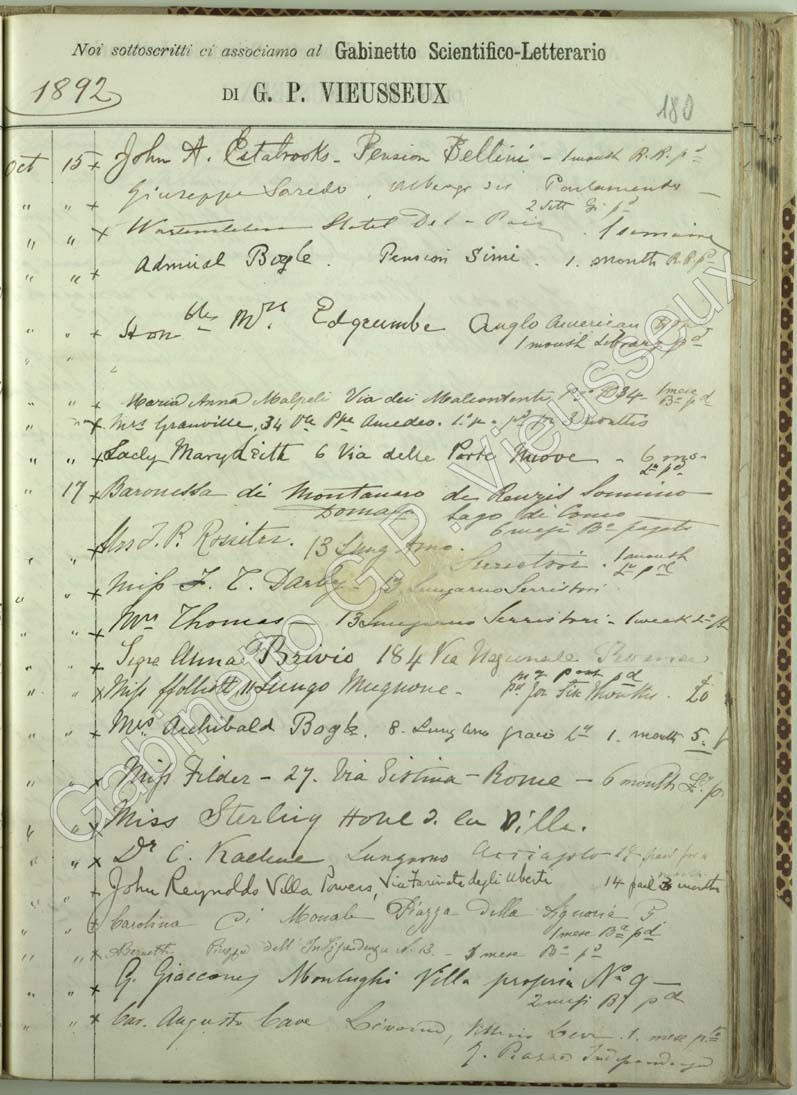 Noi sottoscritti ci associamo al Gabinetto Scientifico-Letterario
1892 DI G. P. VIEUSSEUX 180
Oct 15 x John A. Estabrooks - Pension Bellini - 1 month R.R. pd
" " Giuseppe Saredo, Albergo del Parlamento -
2 Sett pd
" " x Hotel De la Paix. 1 semaine
" " x Admiral Bogle. Pension Simi. 1. month R.R. pd
" " x Honble Mrs. Edgcumbe Anglo American
1 month Library pd
"
" " x Maria Anna Malpeli Via dei Malcontenti 1 mese
Ba pd
" x Mrs Granville, 34 Vle Ppe Amedeo. pd for 3 months
" " x Lady Mary 6 Via delle Porte Nuove - 6 mos
La pd
" 17 x Baronessa di Montanaro de Renzis Sonnino
Lago di Como
6 mesi Ba pagato
" " x 13 Lung Arno. Serristori. 1 month
Ly pd
" " x Miss F. T. Darby - 13 Lungarno Serristori
" " x Mrs Thomas - 13 Lungarno Serristori - 1 week
" " Sigra Anna Brivio 184 Via Nazionale Roma
post pd
" " x Miss ffolliott 11 Lungo Mugnone - for Six Months.
" " x Mrs. Archibald Bogle. 8. Lung'arno Ly 1. month 5.
" " x Miss - 27. Via Sistina - Rome - 6 month
" " x Miss Sterling Hotel d. la Ville.
" " x Dr C. Lungarno Acciajolo
" " x John Reynolds Villa Powers, Via Farinata degli Uberti 14 paid 3 months
" " Carolina Di Monale Piazza della Signoria
1 mese Ba pd
" " x Piazza dell'Indipendenza N. 13. - mese Ba pd
" " x G. Giaccone Montughi Villa propria No 9 -
2 mesi Ba pd
" " x Cav. Augusto Cave Livorno, 1. mese
7. Piazza Indipendenza
Gabinetto G.P. Vieusseux